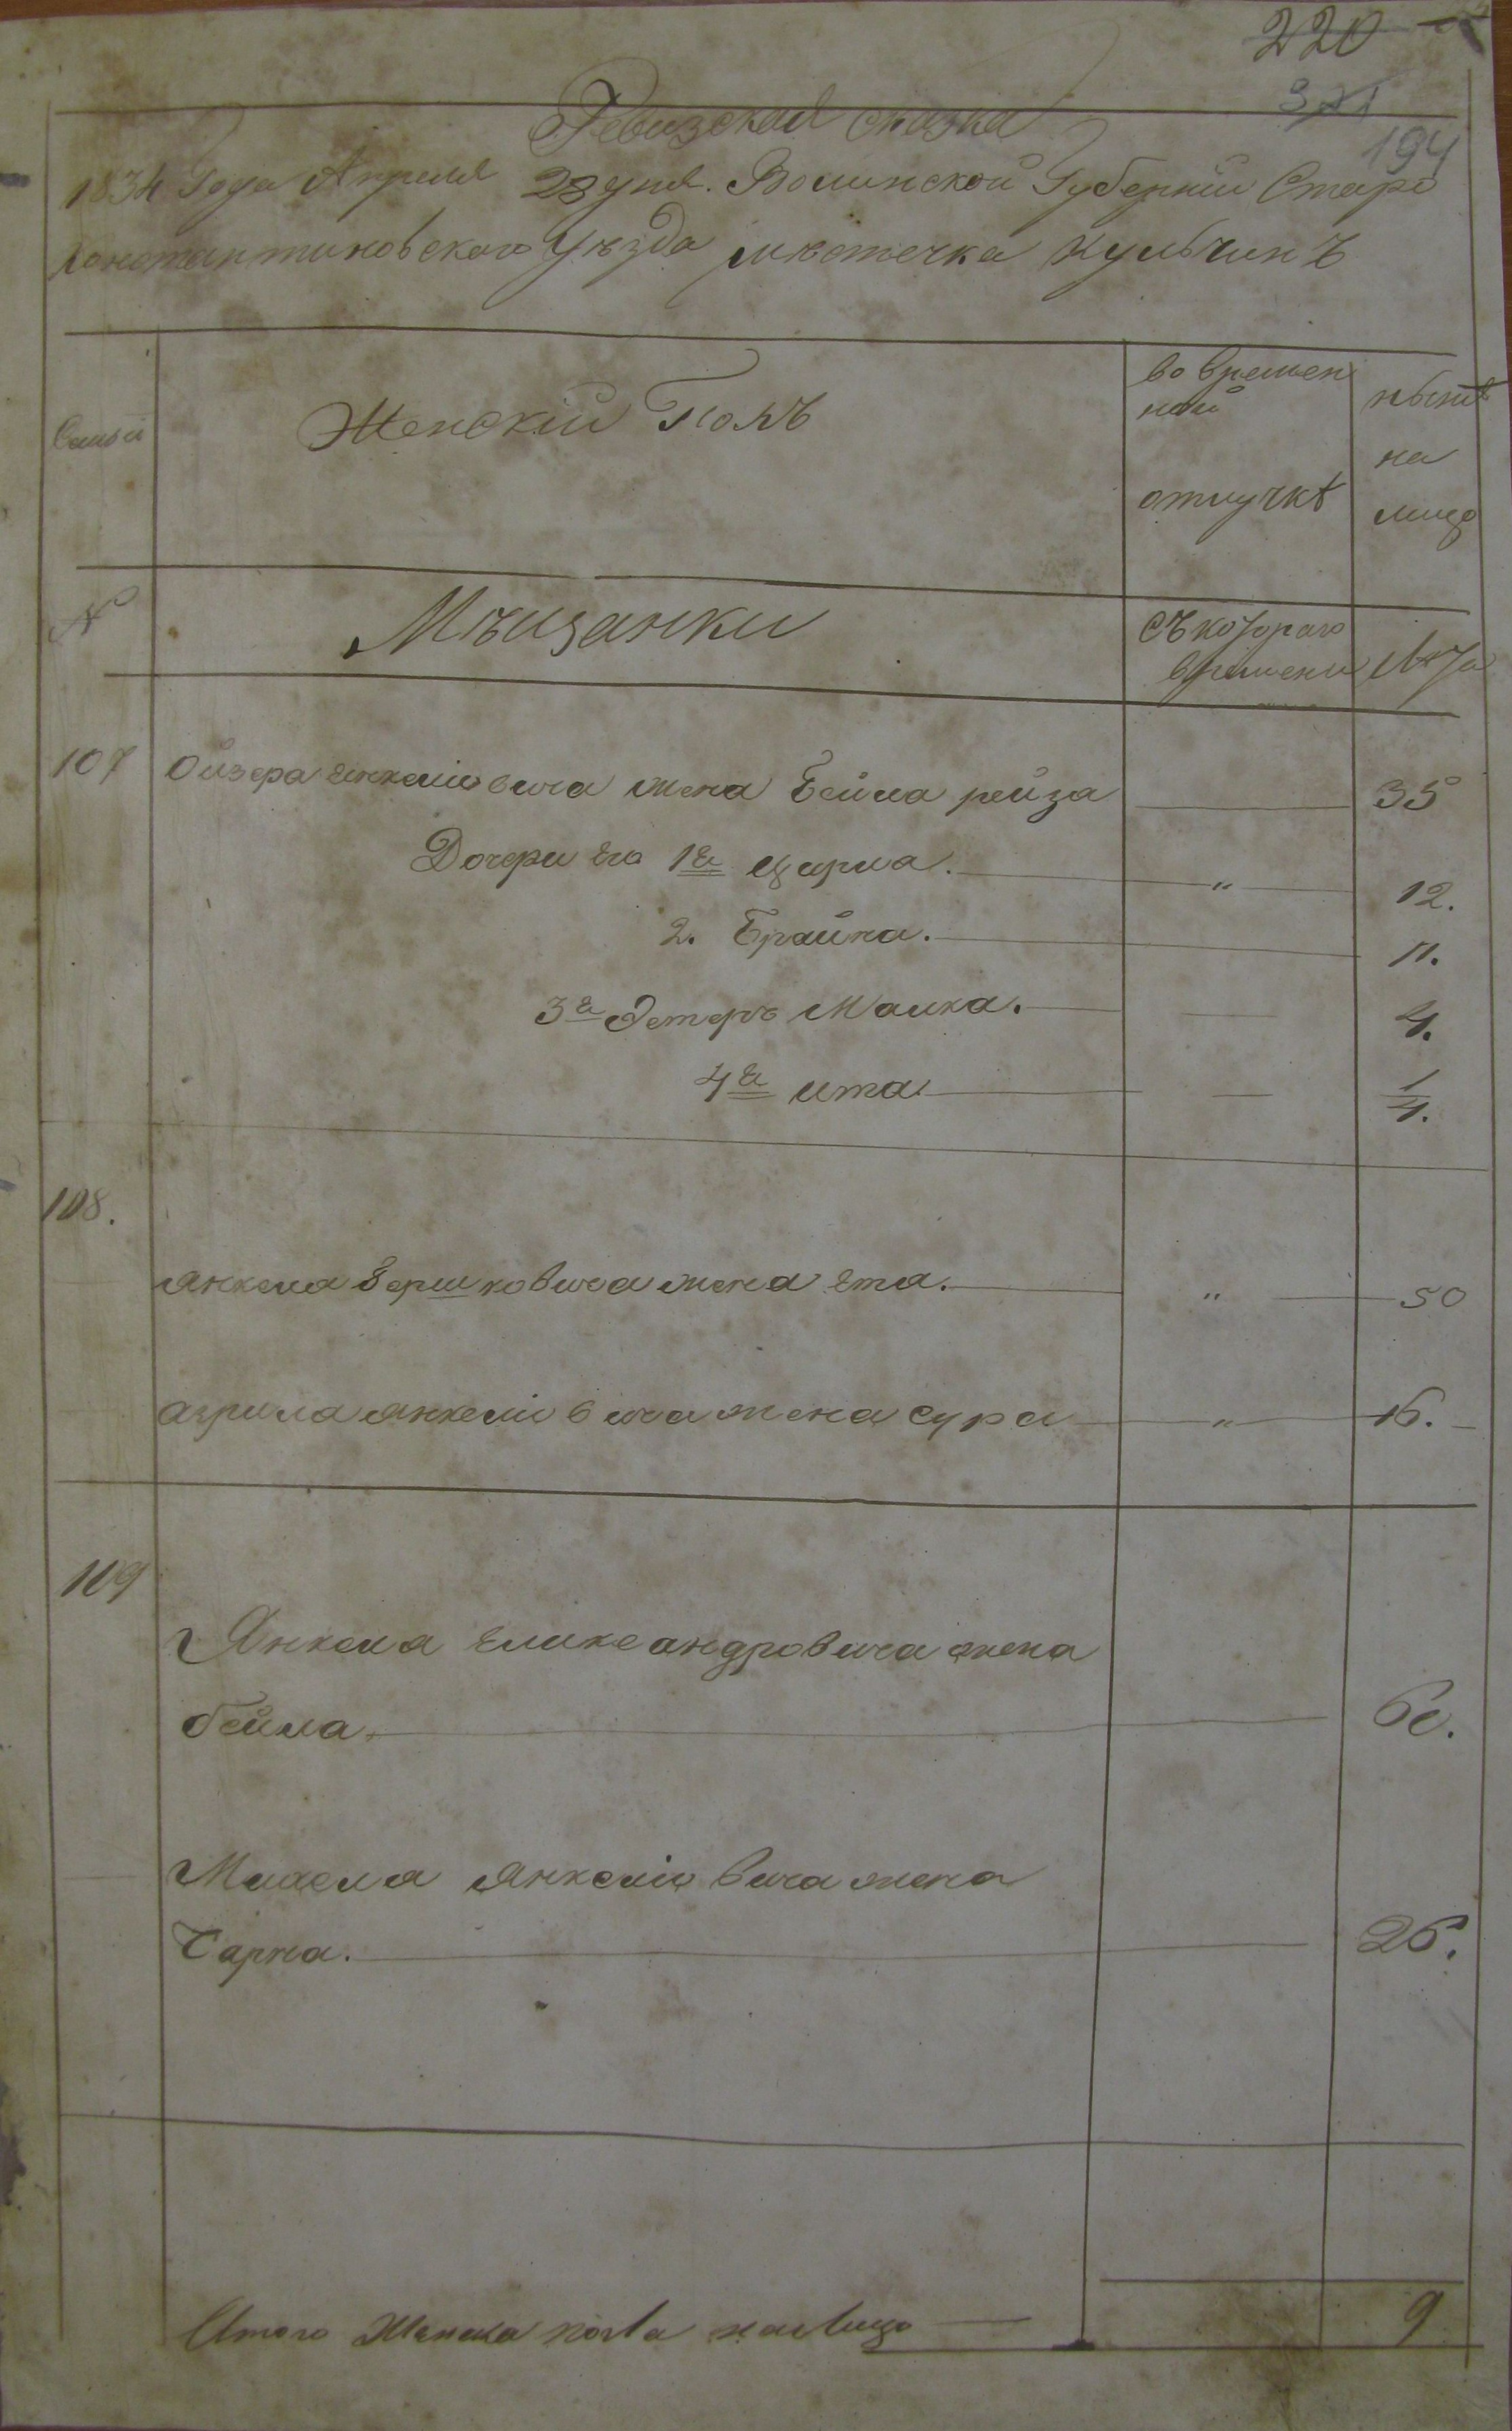 220
371
194
Ревизская сказка
1834 Года Апреля 28 дня. Волинской Губернии Старо
константиновского Уѣзда мѣстечка Кульчинъ
Семьи
Женскій Полъ
во времен
ной
отлучкѣ
нынѣ
на
лицо
N
Мѣщанки
съ котораго
времени
Лѣта
107 Ойзера Янкеліовича жена Бейла рейза 35
Дочери его 1я Цирла. " 12.
2. Брайна. 11.
3я Эстеръ Малка. 4.
4я ита 1/4.
108.
Янкеля Берш ковича жена Ета. " 50
азрила янкеліовича жена сура " 16.
109
Янкеля Еликсандровича жена
бейла. 60.
Михеля Янкеліовича жена
Чарна. 26.
Итого Женска пола налицо 9